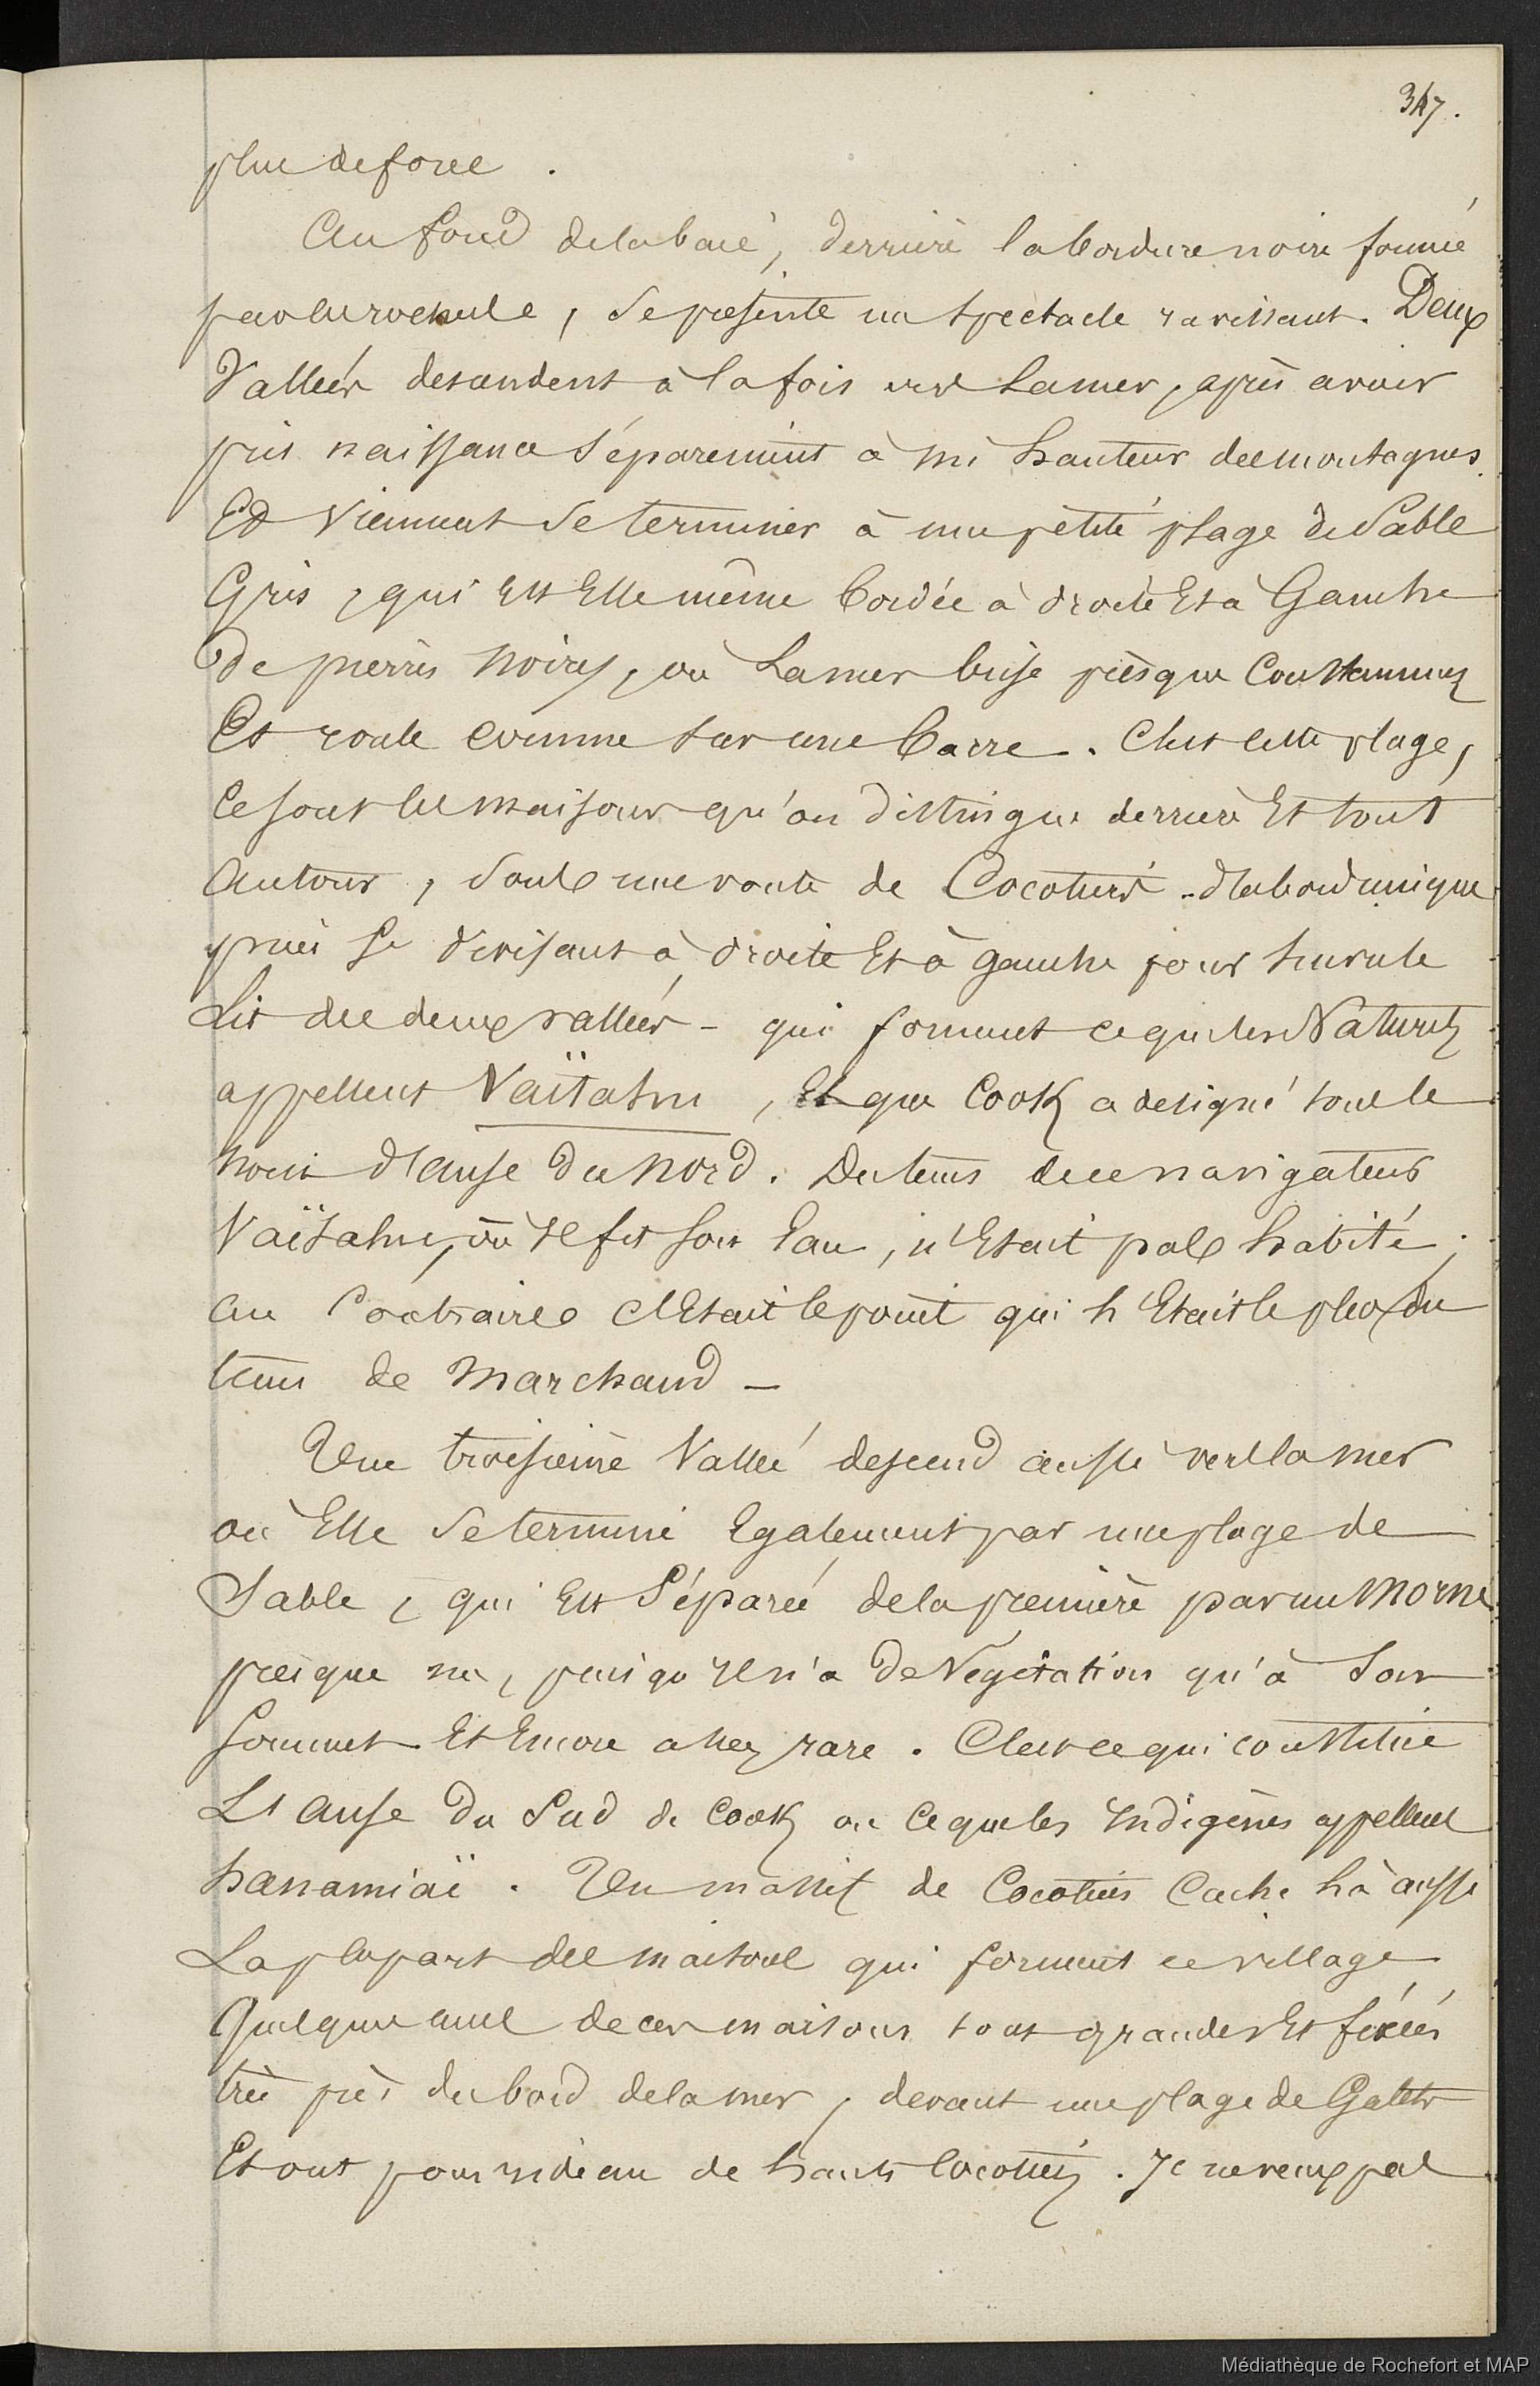 347.
plus de force .
Au fond de la baie, derrière la bordure noire formée
par les rochers, se présente un spectacle ravissant. Deux
Vallées descendent à la fois vers la mer, après avoir
pris naissance séparement à mi hauteur des montagnes
Et viennent se terminer à une petite plage de sable
Gris, qui est Elle même bordée à droite Et à Gauche
de pierres noires, où la mer brise presque constamment
Et roule comme sur une barre. C'est cette plage,
ce sont les maisons qu'on distingue derrière Et tout
autour, sous une voute de Cocotiers - d'abord unique
puis se divisant à droite Et à gauche pour suivre le
Lit des deux vallées - qui forment ce que les Naturels
appellent Vaïtahu, Et que Cook a designé sous le
nom d'anse du nord. Du tems de ce navigateur
Vaïtahu, où Il fit son Eau, n'Etait pas habité ;
au Contraire c'Etait le point qui l'Etait le plus du
tems de Marchand -
Une troisième Vallée descend aussi vers la mer
où Elle se termine Egalement par une plage de
Sable, qui Est séparée de la première par un morne
presque nu, puisqu'Il n'a de Végétation qu'à son
sommet Et Encore assez rare. C'est ce qui constitue
L'anse du Sud de Cook ou ce que les Indigènes appellent
hanamiaï. Un massif de Cocotiers Cache là aussi
La plupart des maisons qui forment ce village
Quelques unes de ces maisons sont grandes Et fixées
très près du bord de la mer, devant une plage de Galets
Et ont pour rideau de hauts Cocotiers. Je ne veux pas
Médiathèque de Rochefort et MAP